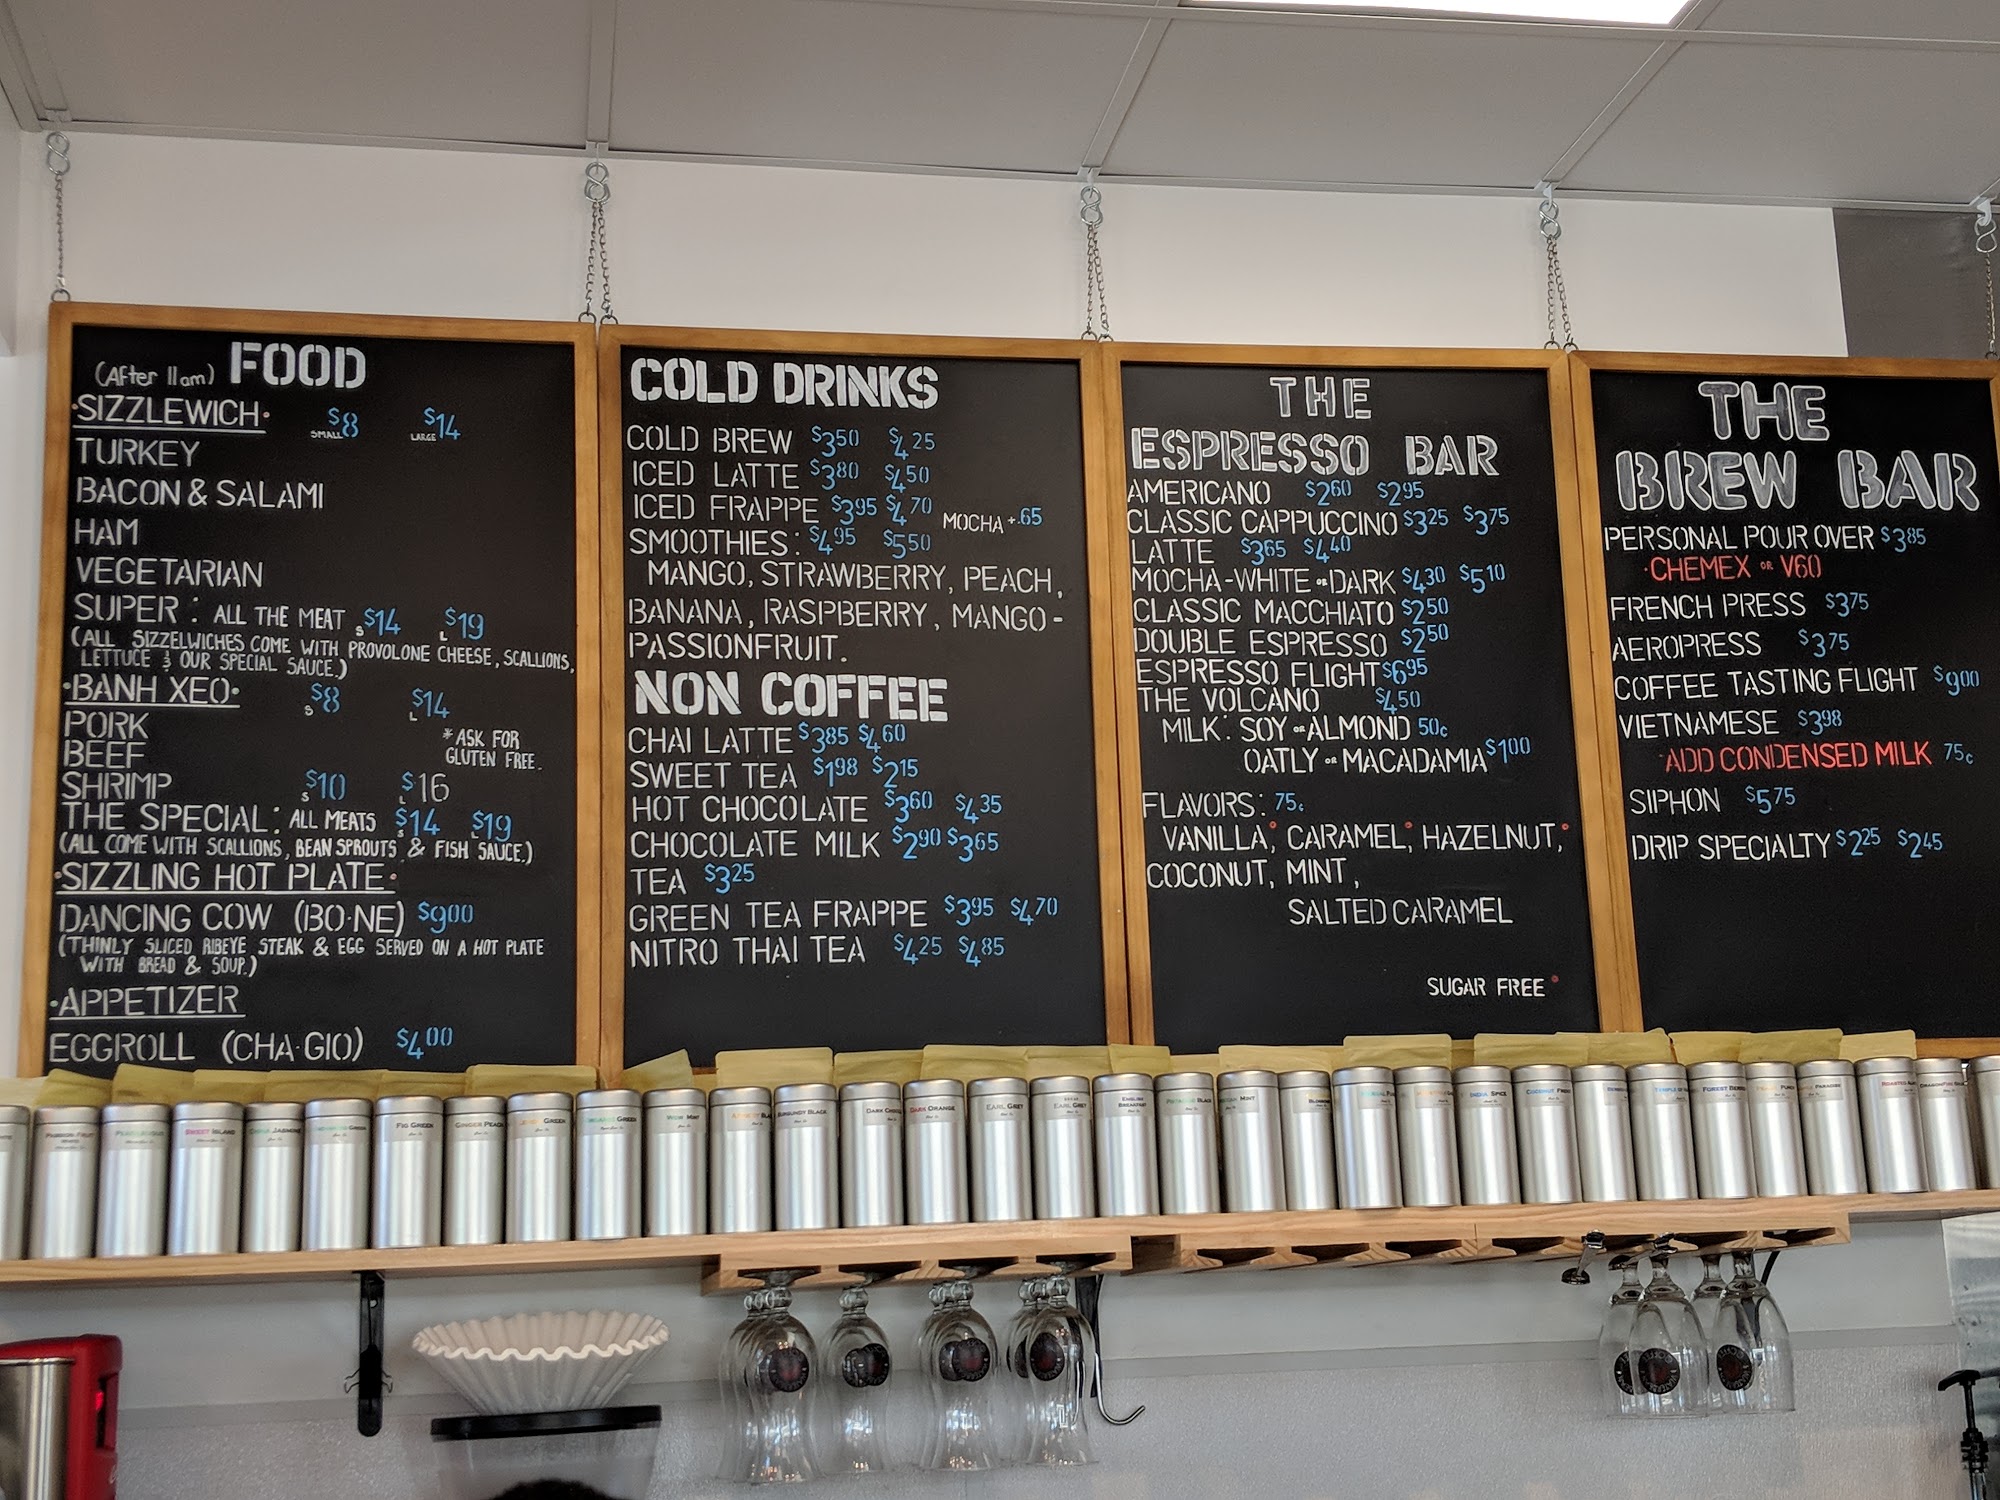 (After 11am) FOOD
·SIZZLEWICH· SMALL $8 LARGE $14
TURKEY
BACON & SALAMI
HAM
VEGETARIAN
SUPER: ALL THE MEAT S $14 L $19
(ALL SIZZELWICHES COME WITH PROVOLONE CHEESE, SCALLIONS,
LETTUCE & OUR SPECIAL SAUCE.)
·BANH XEO· S $8 L $14
PORK
BEEF
*ASK FOR
GLUTEN FREE.
SHRIMP S $10 L $16
THE SPECIAL: ALL MEATS S $14 L $19
(ALL COME WITH SCALLIONS, BEAN SPROUTS & FISH SAUCE.)
·SIZZLING HOT PLATE·
DANCING COW (BO·NE) $9.00
(THINLY SLICED RIBEYE STEAK & EGG SERVED ON A HOT PLATE
WITH BREAD & SOUP.)
·APPETIZER
EGGROLL (CHA·GIO) $4.00
COLD DRINKS
COLD BREW $3.50 $4.25
ICED LATTE $3.80 $4.50
ICED FRAPPE $3.95 $4.70 MOCHA +.65
SMOOTHIES: $4.95 $5.50
MANGO, STRAWBERRY, PEACH,
BANANA, RASPBERRY, MANGO-
PASSIONFRUIT.
NON COFFEE
CHAI LATTE $3.85 $4.60
SWEET TEA $1.98 $2.15
HOT CHOCOLATE $3.60 $4.35
CHOCOLATE MILK $2.90 $3.65
TEA $3.25
GREEN TEA FRAPPE $3.95 $4.70
NITRO THAI TEA $4.25 $4.85
THE
ESPRESSO BAR
AMERICANO $2.60 $2.95
CLASSIC CAPPUCCINO $3.25 $3.75
LATTE $3.65 $4.40
MOCHA-WHITE OR DARK $4.30 $5.10
CLASSIC MACCHIATO $2.50
DOUBLE ESPRESSO $2.50
ESPRESSO FLIGHT $6.95
THE VOLCANO $4.50
MILK: SOY OR ALMOND 50c
OATLY OR MACADAMIA $1.00
FLAVORS: 75c
VANILLA, CARAMEL, HAZELNUT,
COCONUT, MINT,
SALTED CARAMEL
SUGAR FREE
THE
BREW BAR
PERSONAL POUR OVER $3.85
·CHEMEX OR V60
FRENCH PRESS $3.75
AEROPRESS $3.75
COFFEE TASTING FLIGHT $9.00
VIETNAMESE $3.98
-ADD CONDENSED MILK 75c
SIPHON $5.75
DRIP SPECIALTY $2.25 $2.45
PASSION FRUIT
SWEET ISLAND
FIG GREEN
GINGER PEACH
WOW MINT
BURGUNDY BLACK
DARK ORANGE
EARL GREY
EARL GREY
ENGLISH
BREAKFAST
INDIA SPICE
FOREST BERRIES